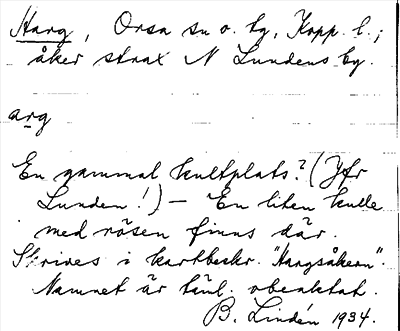 Harg, Orsa sn o. tg, Kopp. l.;
åker strax N Lundens by.
arg
En gammal kultplats? (Jfr
Lunden!) – En liten kulle
med rösen finns där.
Skrives i kartbeskr. "Hargsåkern".
Namnet är täml. obeaktat.
B. Lindén 1934.